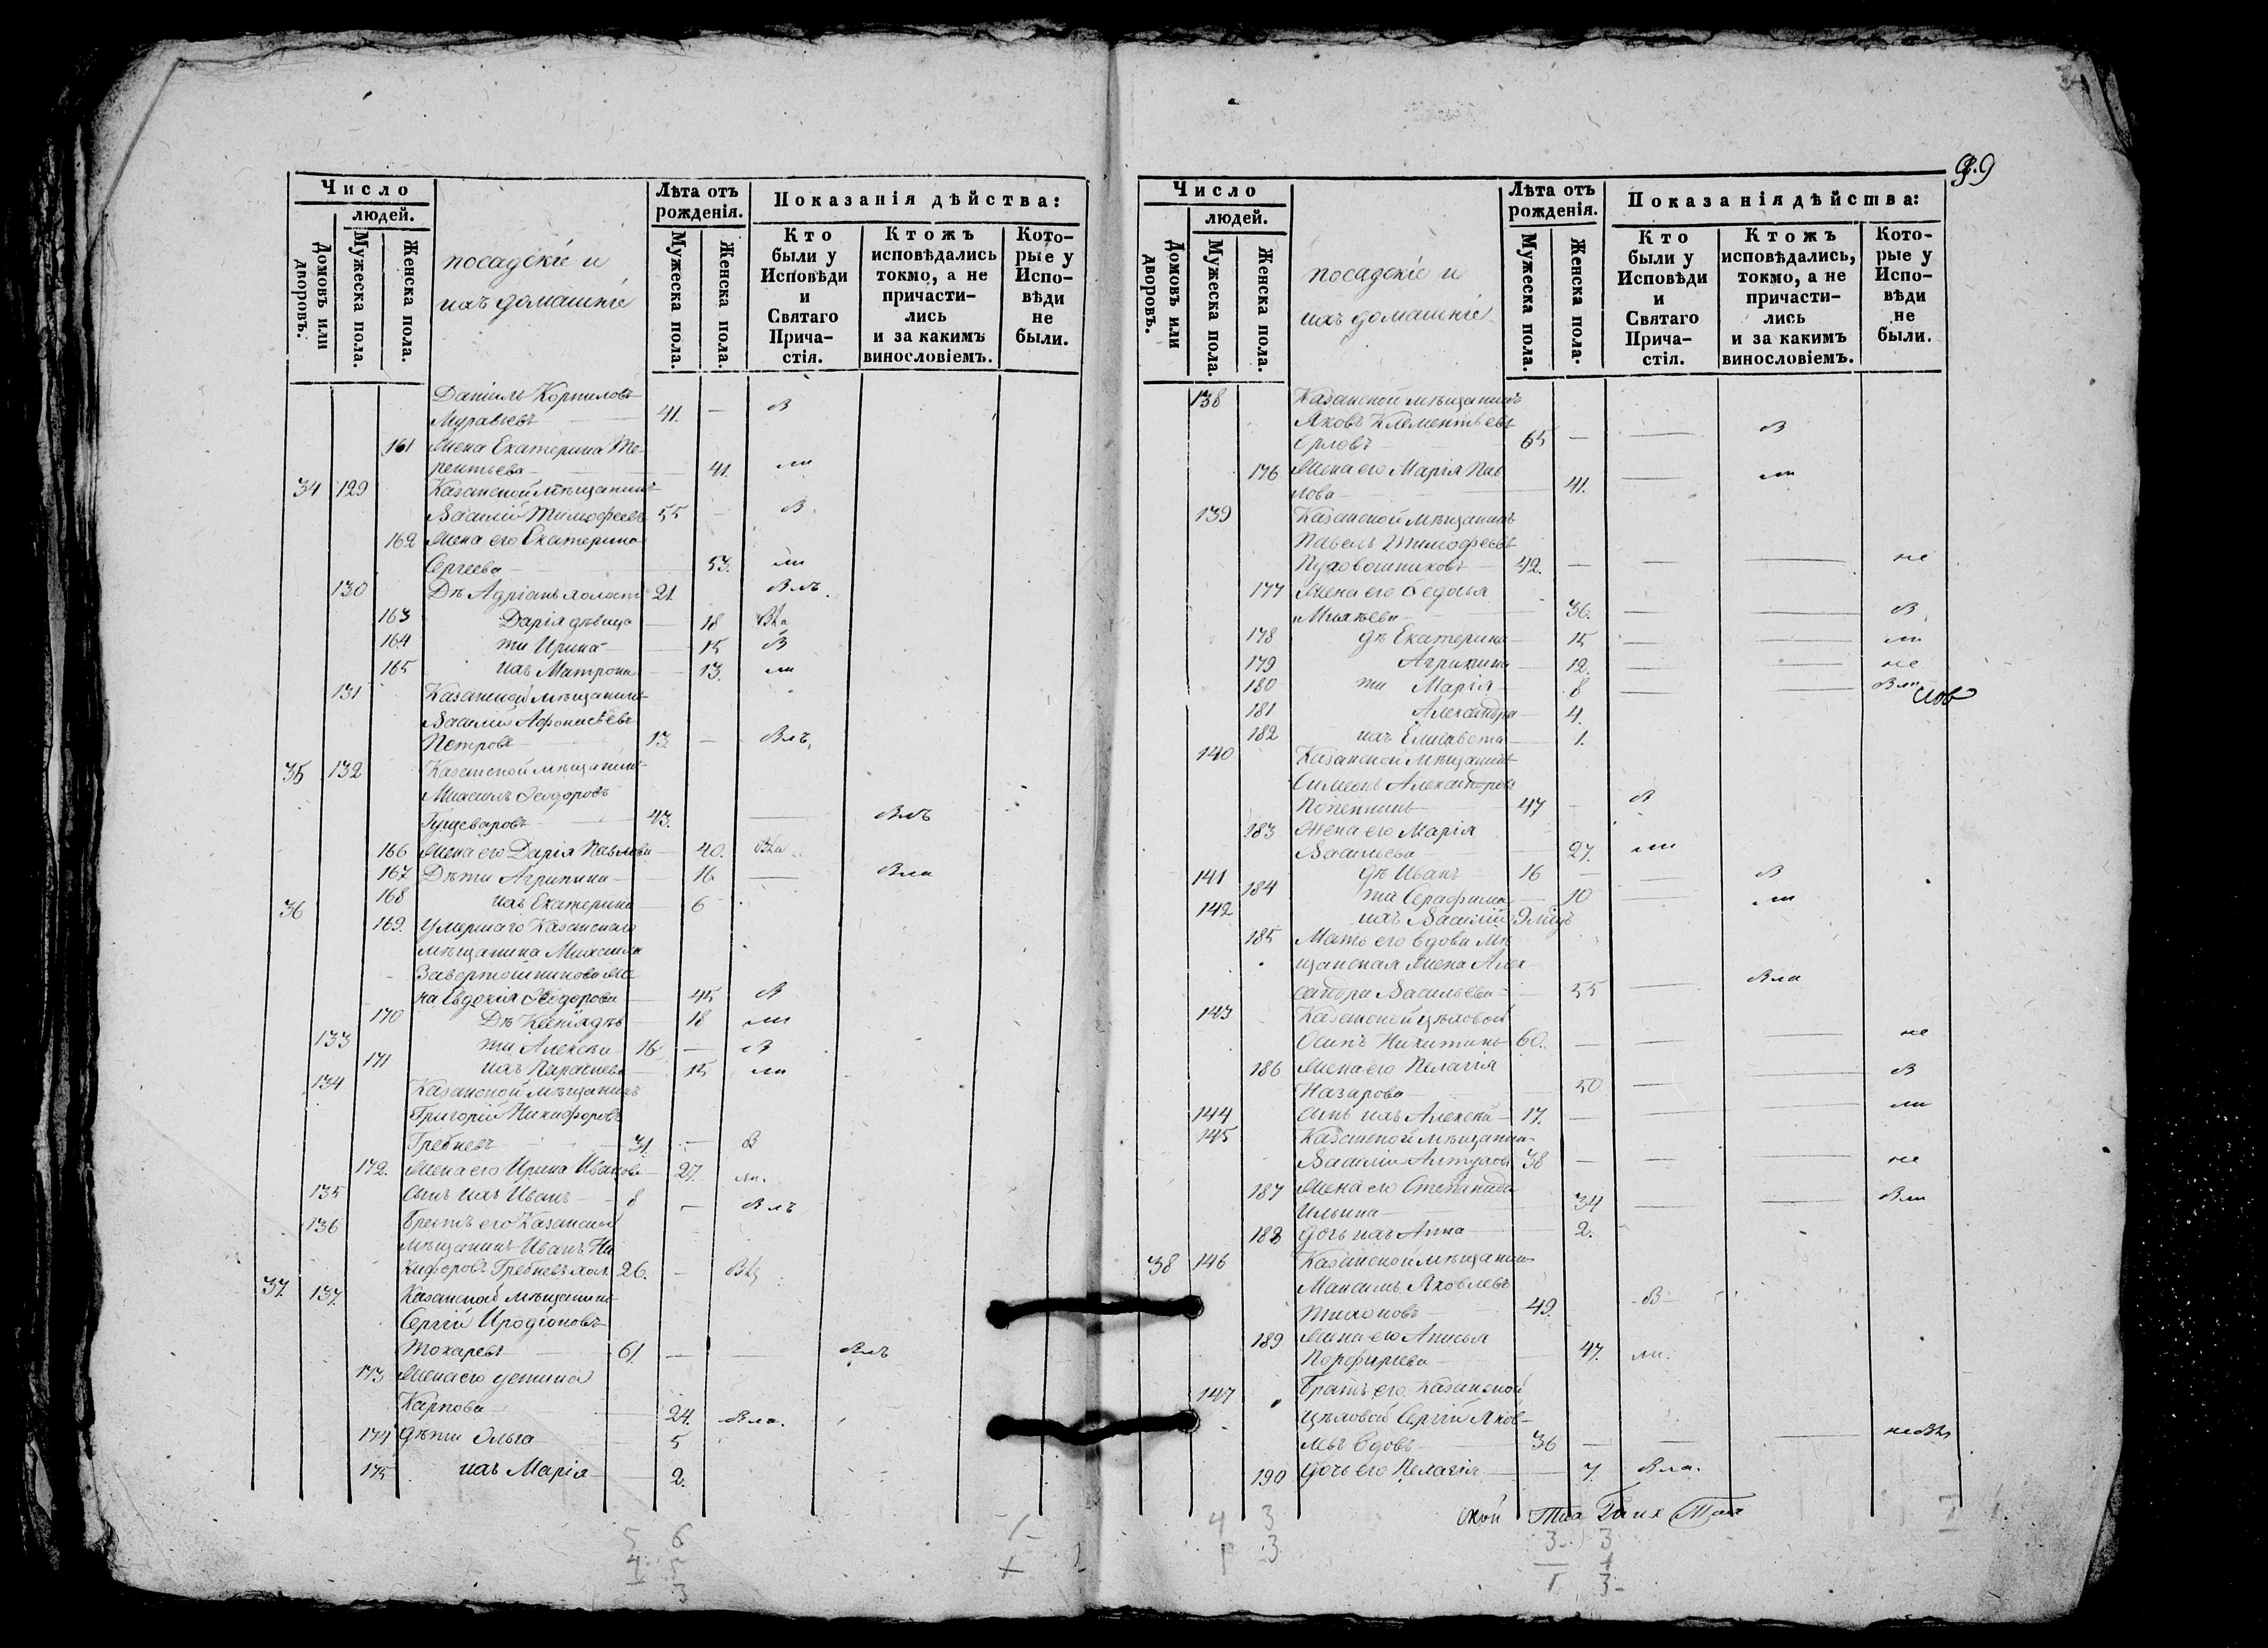 Число
людей.
Домовъ или дворовъ.
Мужеска пола.
Женска пола.
посадскіе и
ихъ домашніе
Лѣта отъ
рожденія.
Мужеска пола.
Женска пола.
Показанія дѣйства:
Кто
были у
Исповѣди
и
Святаго
Прича-
стія.
Ктожъ
исповѣдались
токмо, а не
причасти-
лись
и за какимъ
винословіемъ.
Кото-
рые у
Испо-
вѣди
не
были.
Даніилъ Корниловъ
Муравьевъ 41. — в
161 Жена Екатерина Те-
рентьева 41. ли
34 129 Казанской мѣщанинъ
Василій Тимофеевъ 55 — в
162 Жена его Екатерина
Сергеева 53. ли
130 Дѣ Адріанъ холостъ 21. Влъ
163 Дарія дѣвица 18
164 ти Ирина 15 в
165 ихъ Матрона 13. ли
131 Казанской мѣщанинъ
Василій Афонасьевъ
Петровъ 13 — Влъ
35 132 Казанской мѣщанинъ
Михаилъ Ѳеодоровъ
43. — Влъ
166 Жена его Дарія Павлова 40.
167 Дѣти Агрипина 16 — Вла
168 ихъ Екатерина 6
36
169. Умершаго Казанскаго
мѣщанина Михаила
Же
на Евдокія Ѳеодорова 45 в
170 Дѣ Ксенія дѣв 18 ли
133 ти Алексѣй 16 — в
171 ихъ Параскева 15 ли
134 Казанской мѣщанинъ
Григорій Никифоровъ
Гребневъ 31. — в
172. Жена его Ирина Иванова 27. ли.
135 Сынъ ихъ Иванъ 8 — Влъ
136 Братъ его Казанской
мѣщанинъ Иванъ Ни
кифоровъ Гребневъ хол. 26. —
37. 137. Казанской мѣщанинъ
Сергій Иродіоновъ
Токаревъ 61. — — Влъ
173 Жена его Устинія
Карпова 24. Вла.
174 Дѣти Ольга 5
175 ихъ Марія 2.
39
Число
людей.
Домовъ или дворовъ.
Мужеска пола.
Женска пола.
посадскіе и
ихъ домашніе
Лѣта отъ
рожденія.
Мужеска пола.
Женска пола.
Показанія дѣйства:
Кто
были у
Исповѣди
и
Святаго
Прича-
стія.
Ктожъ
исповѣдались,
токмо, а не
причасти-
лись
и за какимъ
винословіемъ.
Кото-
рые у
Испо-
вѣди
не
были.
138 Казанской мѣщанинъ
Яковъ Клементьевъ
Орловъ 65 — — в
176 Жена его Марія Пав
лова 41. — ли
139 Казанской мѣщанинъ
Павелъ Тимофеевъ
Пуховошниковъ 42. — — — не
177 Жена его Ѳедосья
36. — — в
178 дѣ Екатерина 15 — — ли
179 Агрипина 12. — — не
180 ти Марія 8 — — Вли
181 Александра 4.
182 ихъ Елисавета 1.
140 Казанской мѣщанинъ
Симеонъ Александровъ
47 — в
183 Жена его Марія
Васильева 27. ли
141 дѣ Иванъ 16 — — в
184 ти Серафима 10 — ли
142 ихъ Василій
185 Мать его вдова мѣ
щанская жена Алек
сандра Васильева 55 — Вла
143 Казанской цѣховой
Осипъ Никитинъ 60. — — — не
186 Жена его Пелагія
Назарова 50 — — в
144 Сынъ ихъ Алексѣй 17. — — — ли
145 Казанской мѣщанин-
Василій 38 — — — не
187 Жена его Степанида
Ильина 34 — — Вли
188 дочь ихъ Анна 2.
38 146 Казанской мѣщанин
Максимъ Яковлевъ
Тихоновъ 49. в
189 Жена его Анисья
Порфирьева 47. ли.
147 Братъ его Казанской
цѣховой Сергій Яков-
левъ вдовъ 36 — — —
190 дочь его Пелагія 7. Вла.